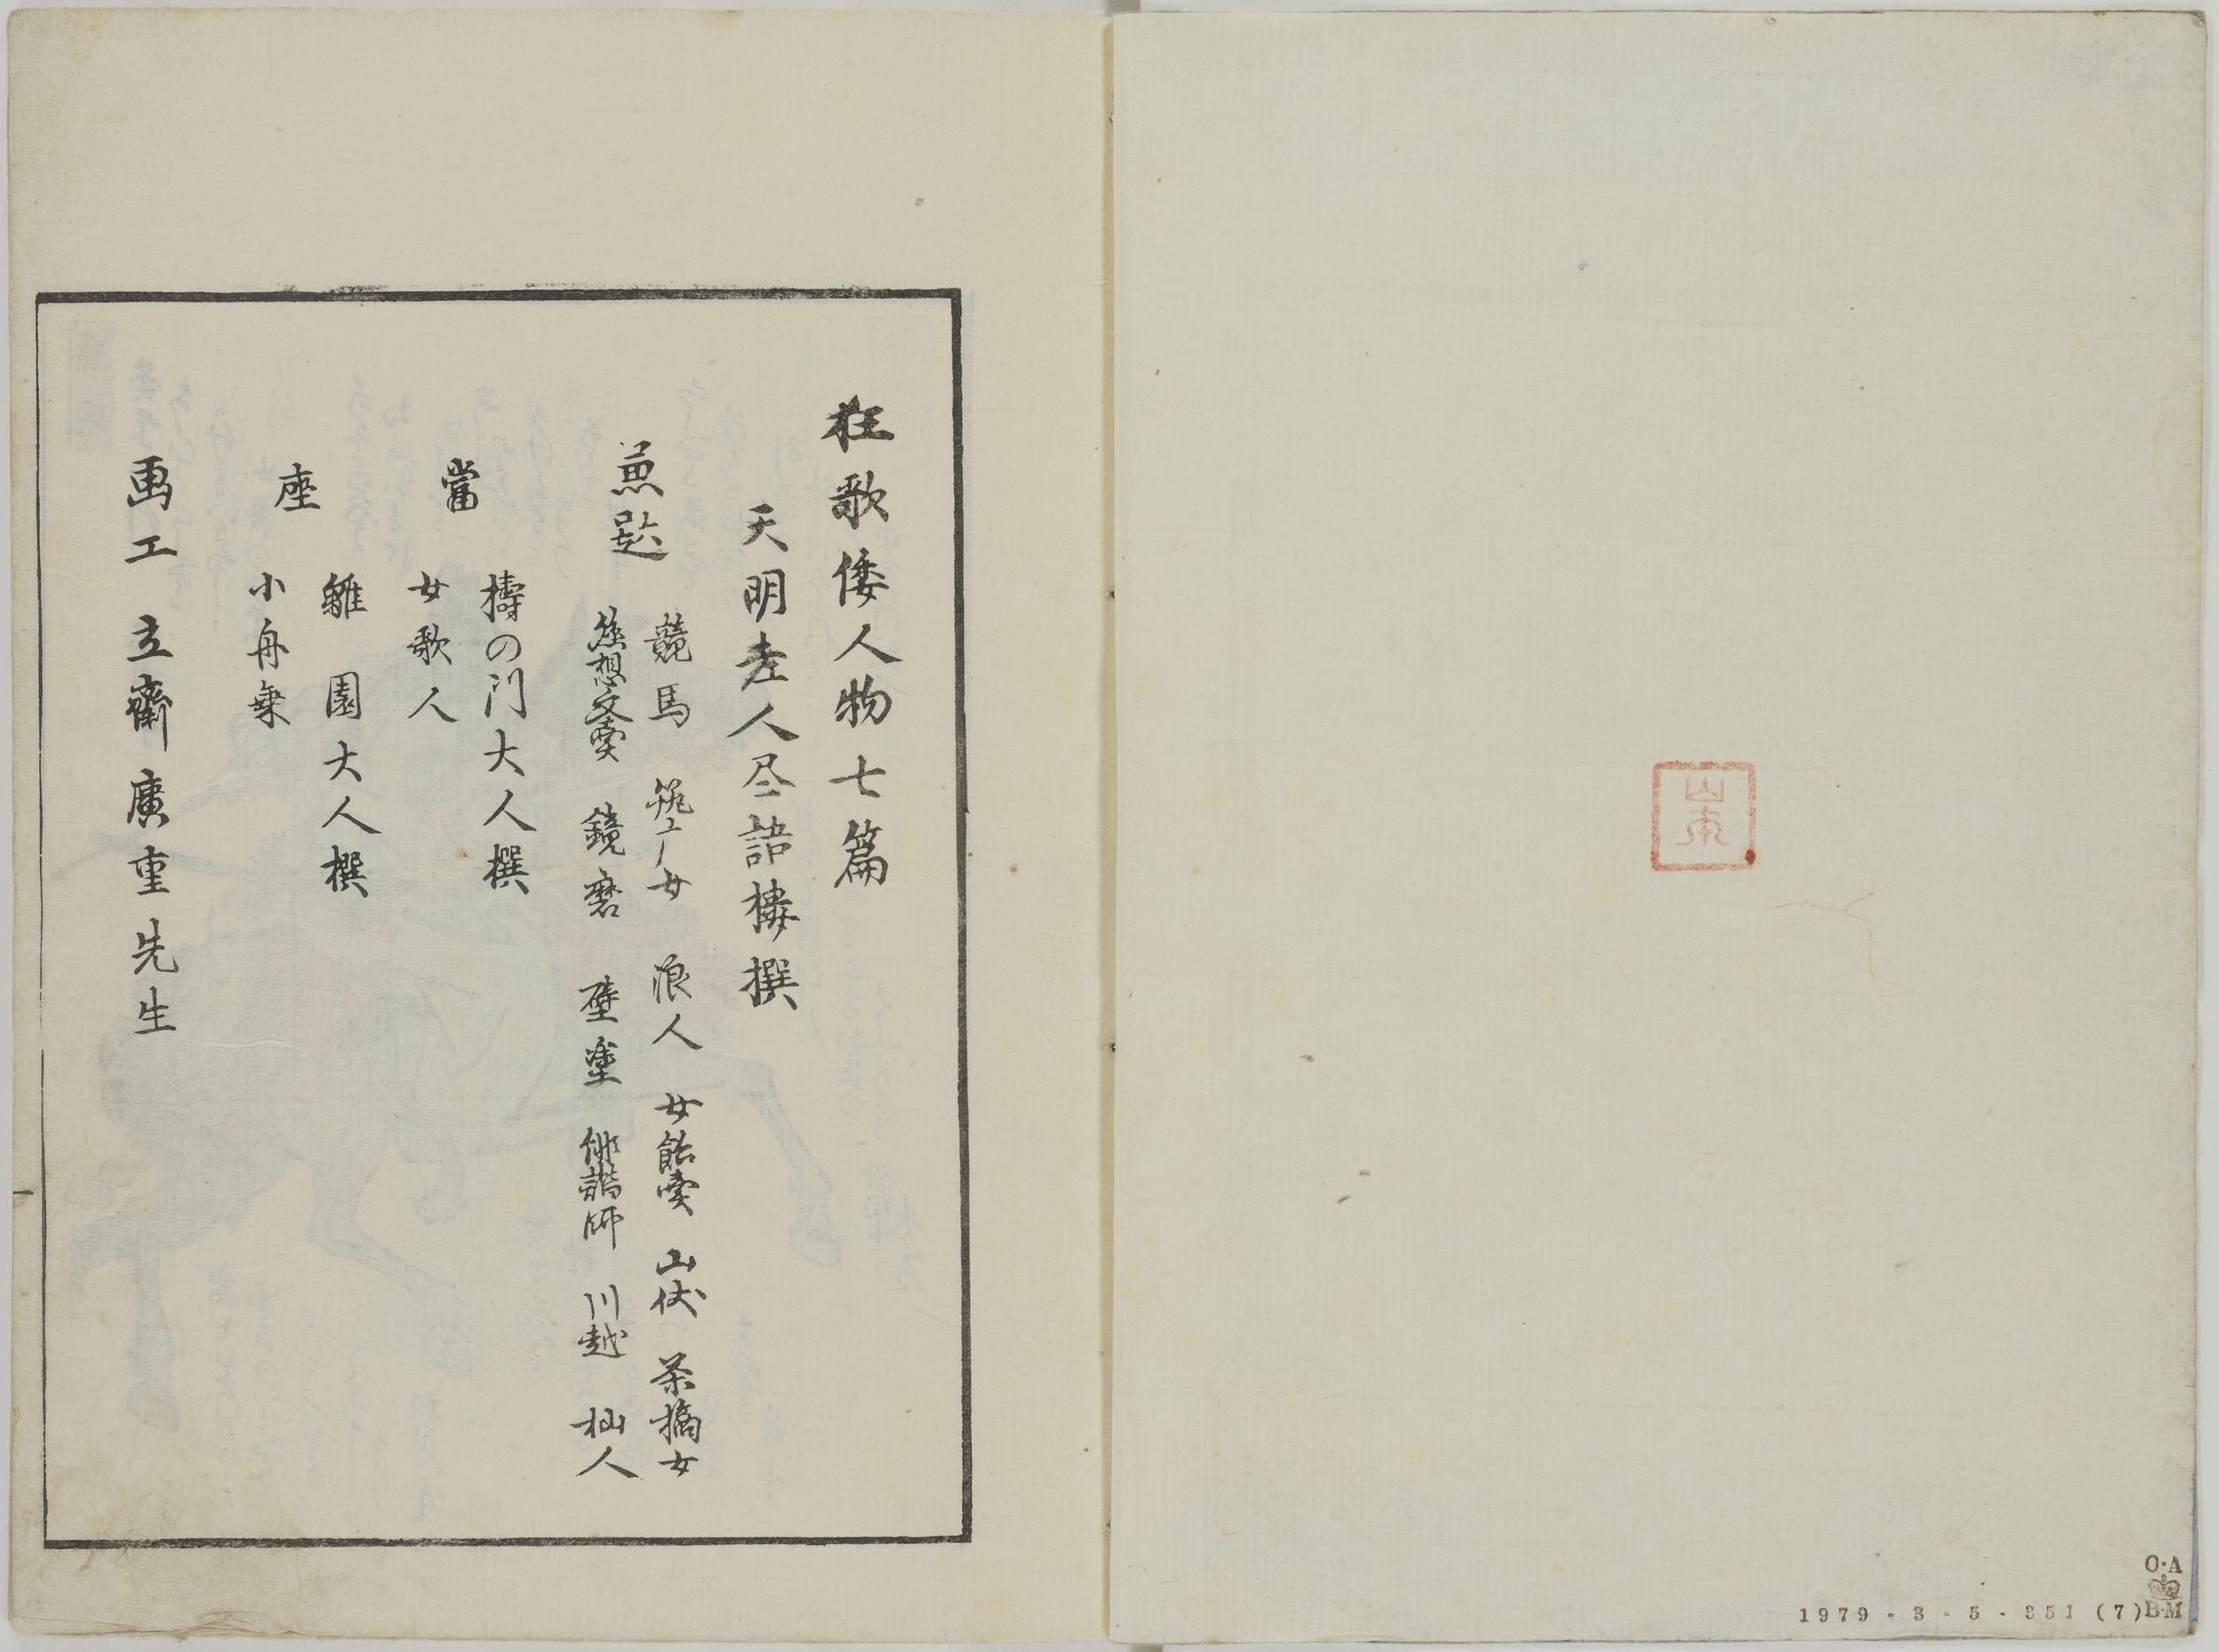 山本
1979-3-5-351(7)
O·A
B·M
狂歌倭人物七篇
天明老人尽語楼撰
兼題
競馬 筑ユノ女 浪人 女飴賣 山伏 茶摘女
懸想文賣 鏡磨 壁塗 俳諧師 川越 杣人
當
檮の門大人撰
女歌人
座
雛園大人撰
小舟乗
画工 立齋廣重先生